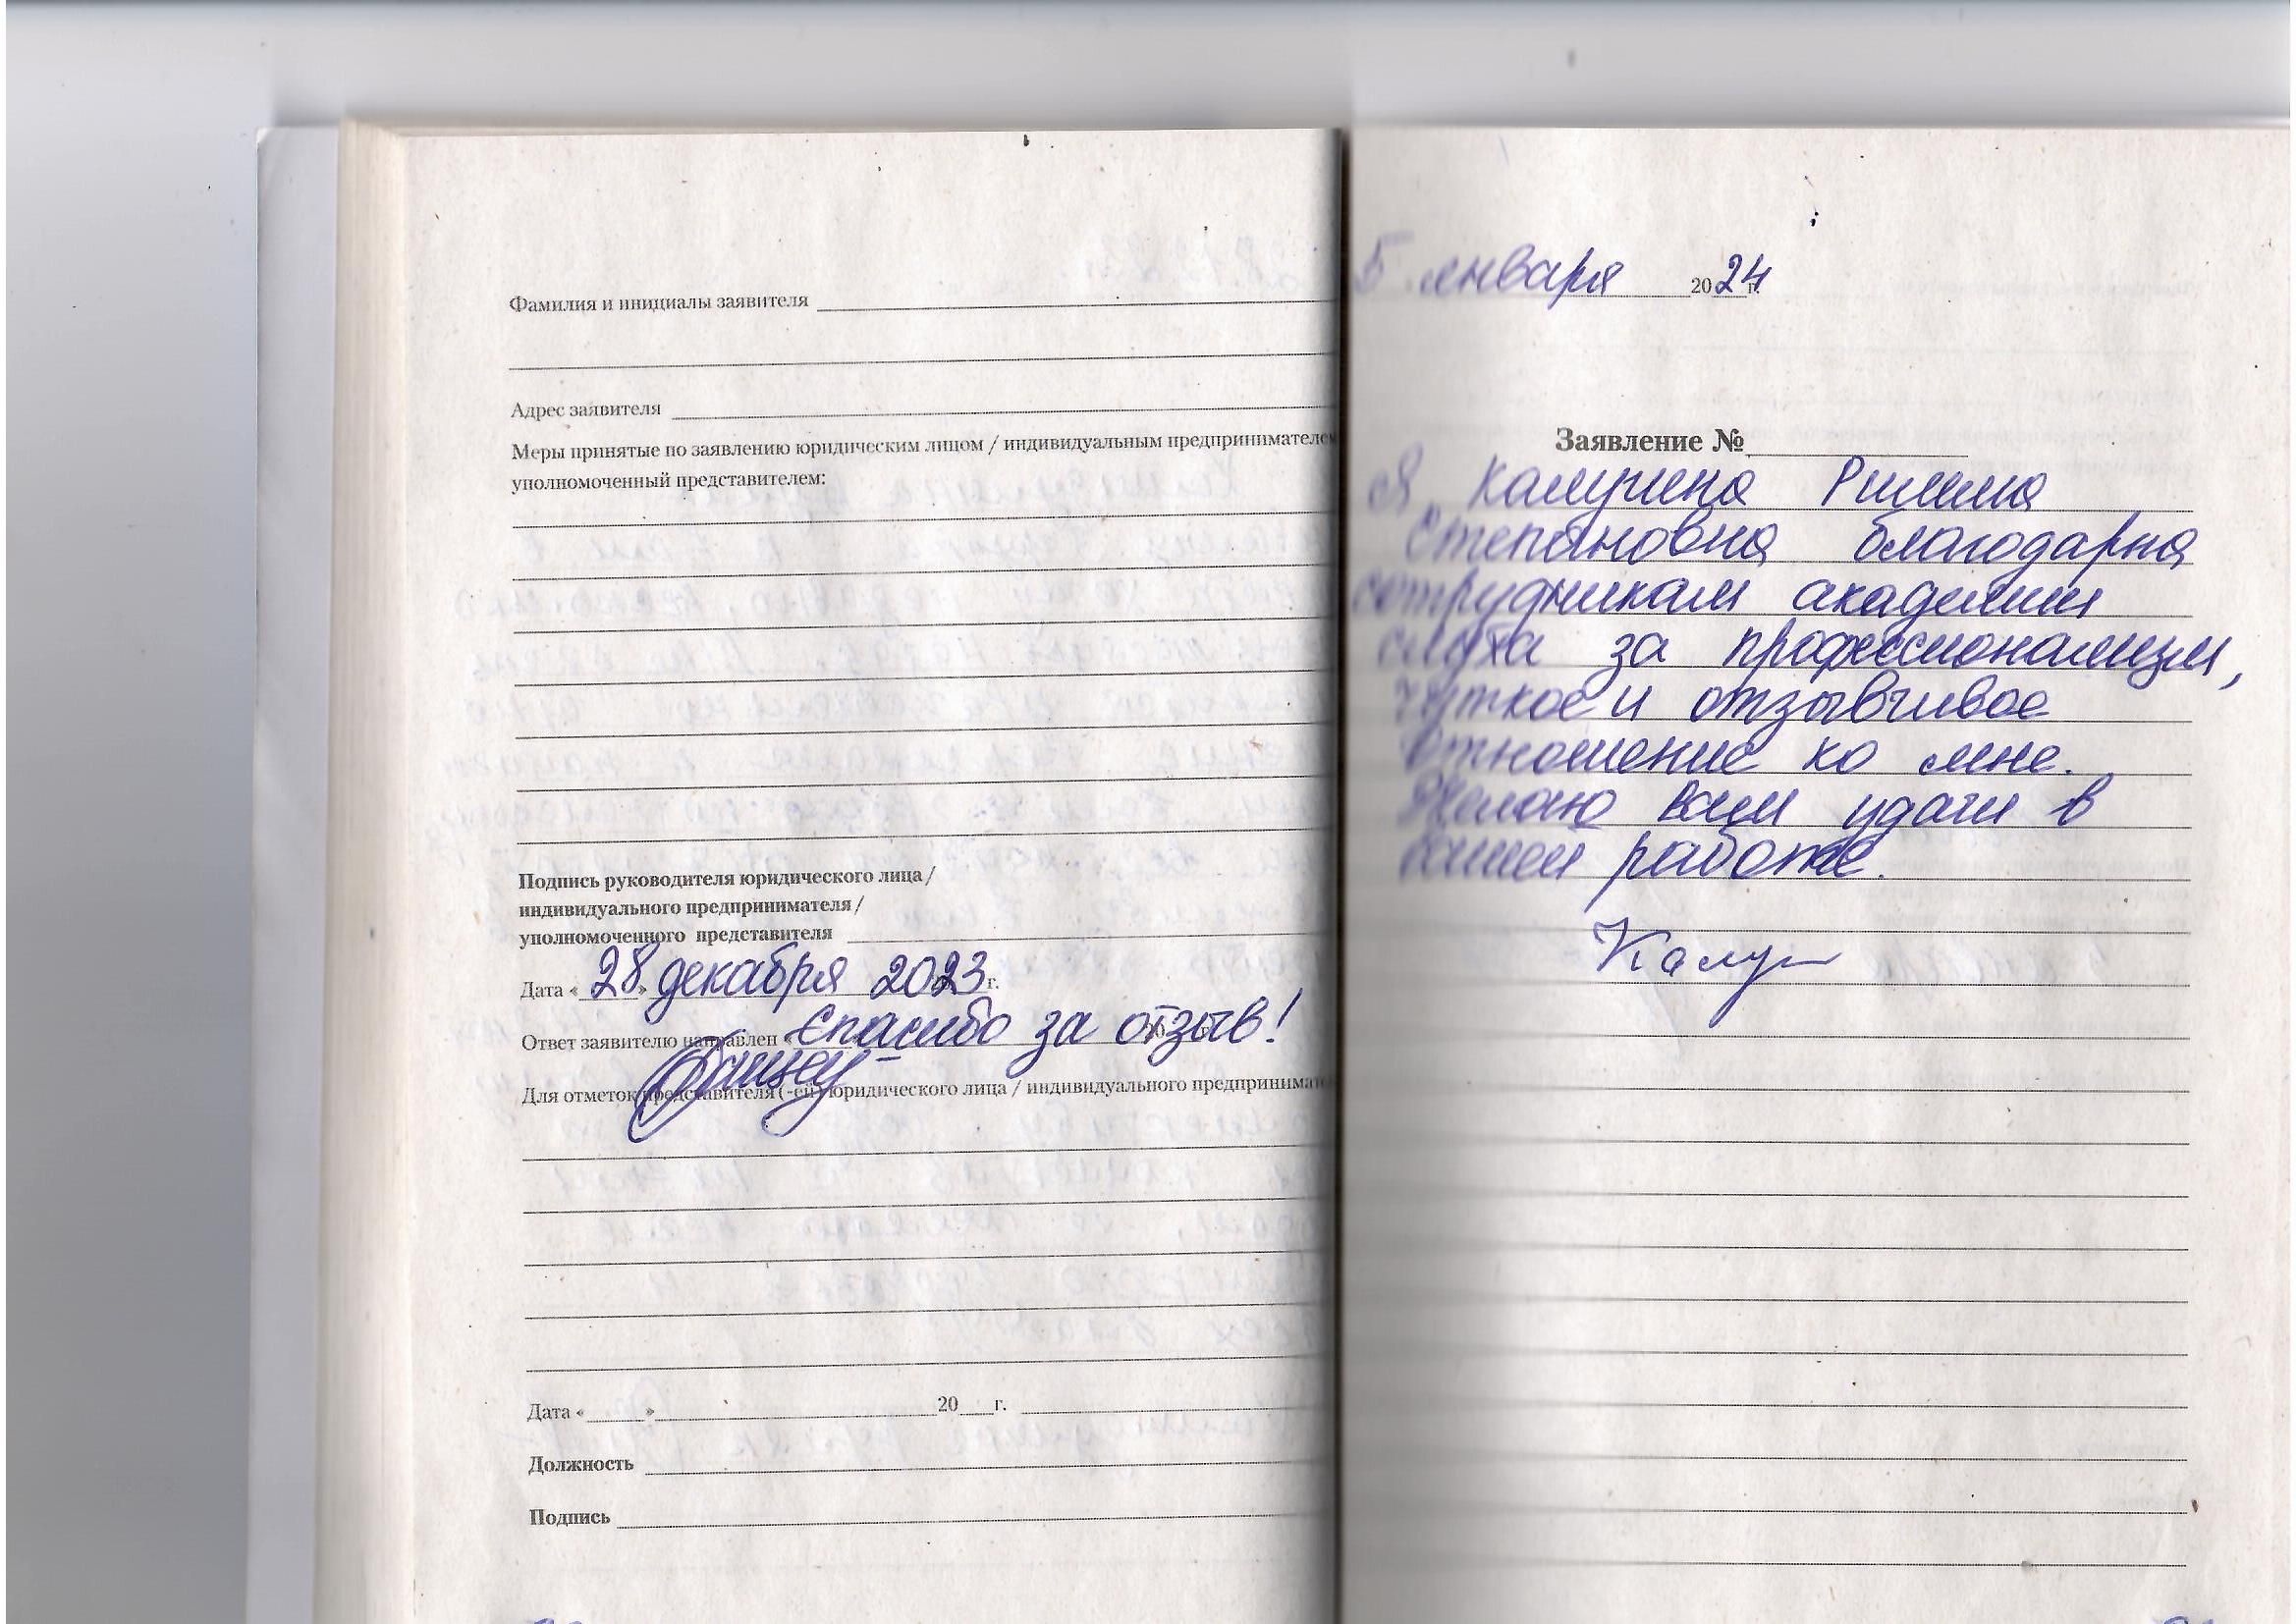 Фамилия и инициалы заявителя
Адрес заявителя
Меры принятые по заявлению юридическим лицом / индивидуальным предпринимателем
уполномоченный представителем:
Подпись руководителя юридического лица /
индивидуального предпринимателя /
уполномоченного представителя
Дата «28» декабря 2023 г.
Ответ заявителю направлен « Спасибо за отзыв!
Для отметок представителя (-ей) юридического лица / индивидуального предпринимат
Дата « » 20 г.
Должность
Подпись
5 января 2024 г.
Заявление №
Я, Калугина Римма
Степановна благодарна
сотрудникам академии
слуха за профессионализм,
чуткое и отзывчивое
отношение ко мне.
Желаю вам удачи в
вашей работе.
Калуг